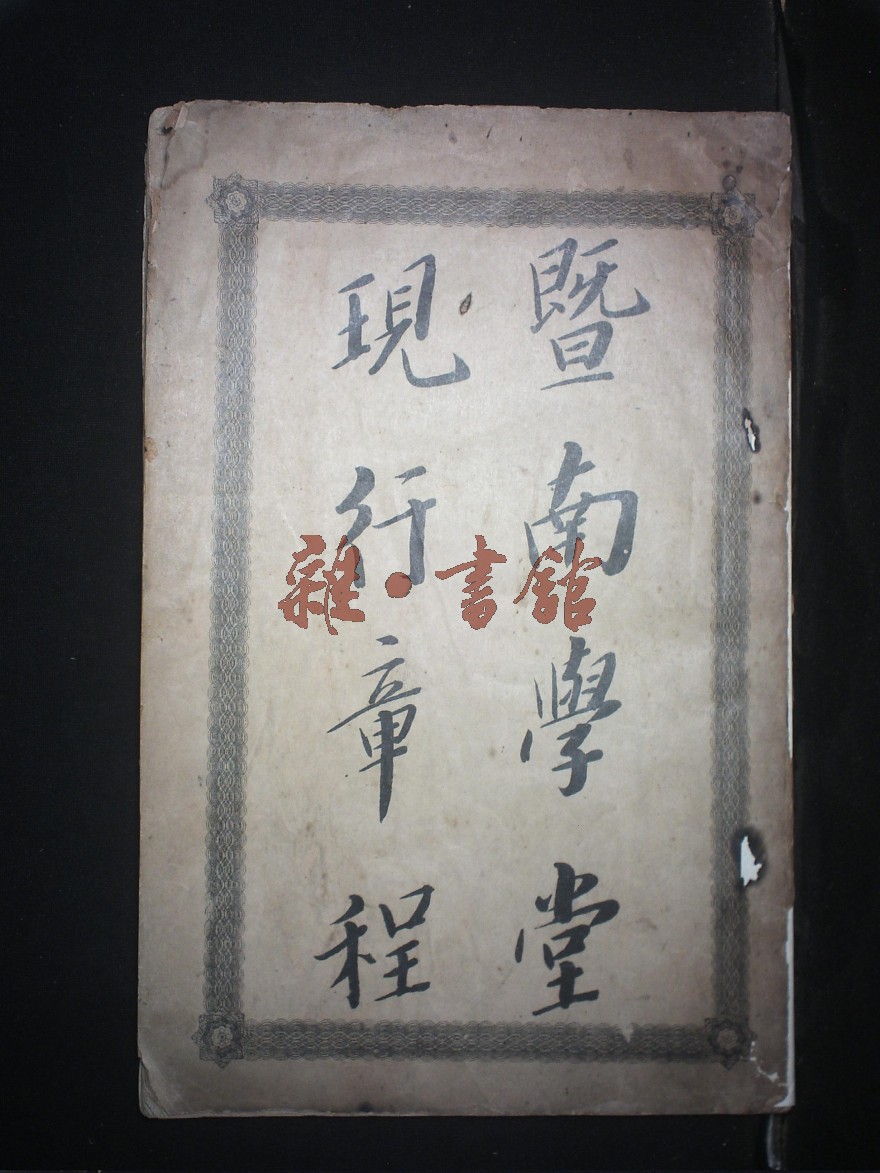 暨南學堂
現行章程
雜·書館